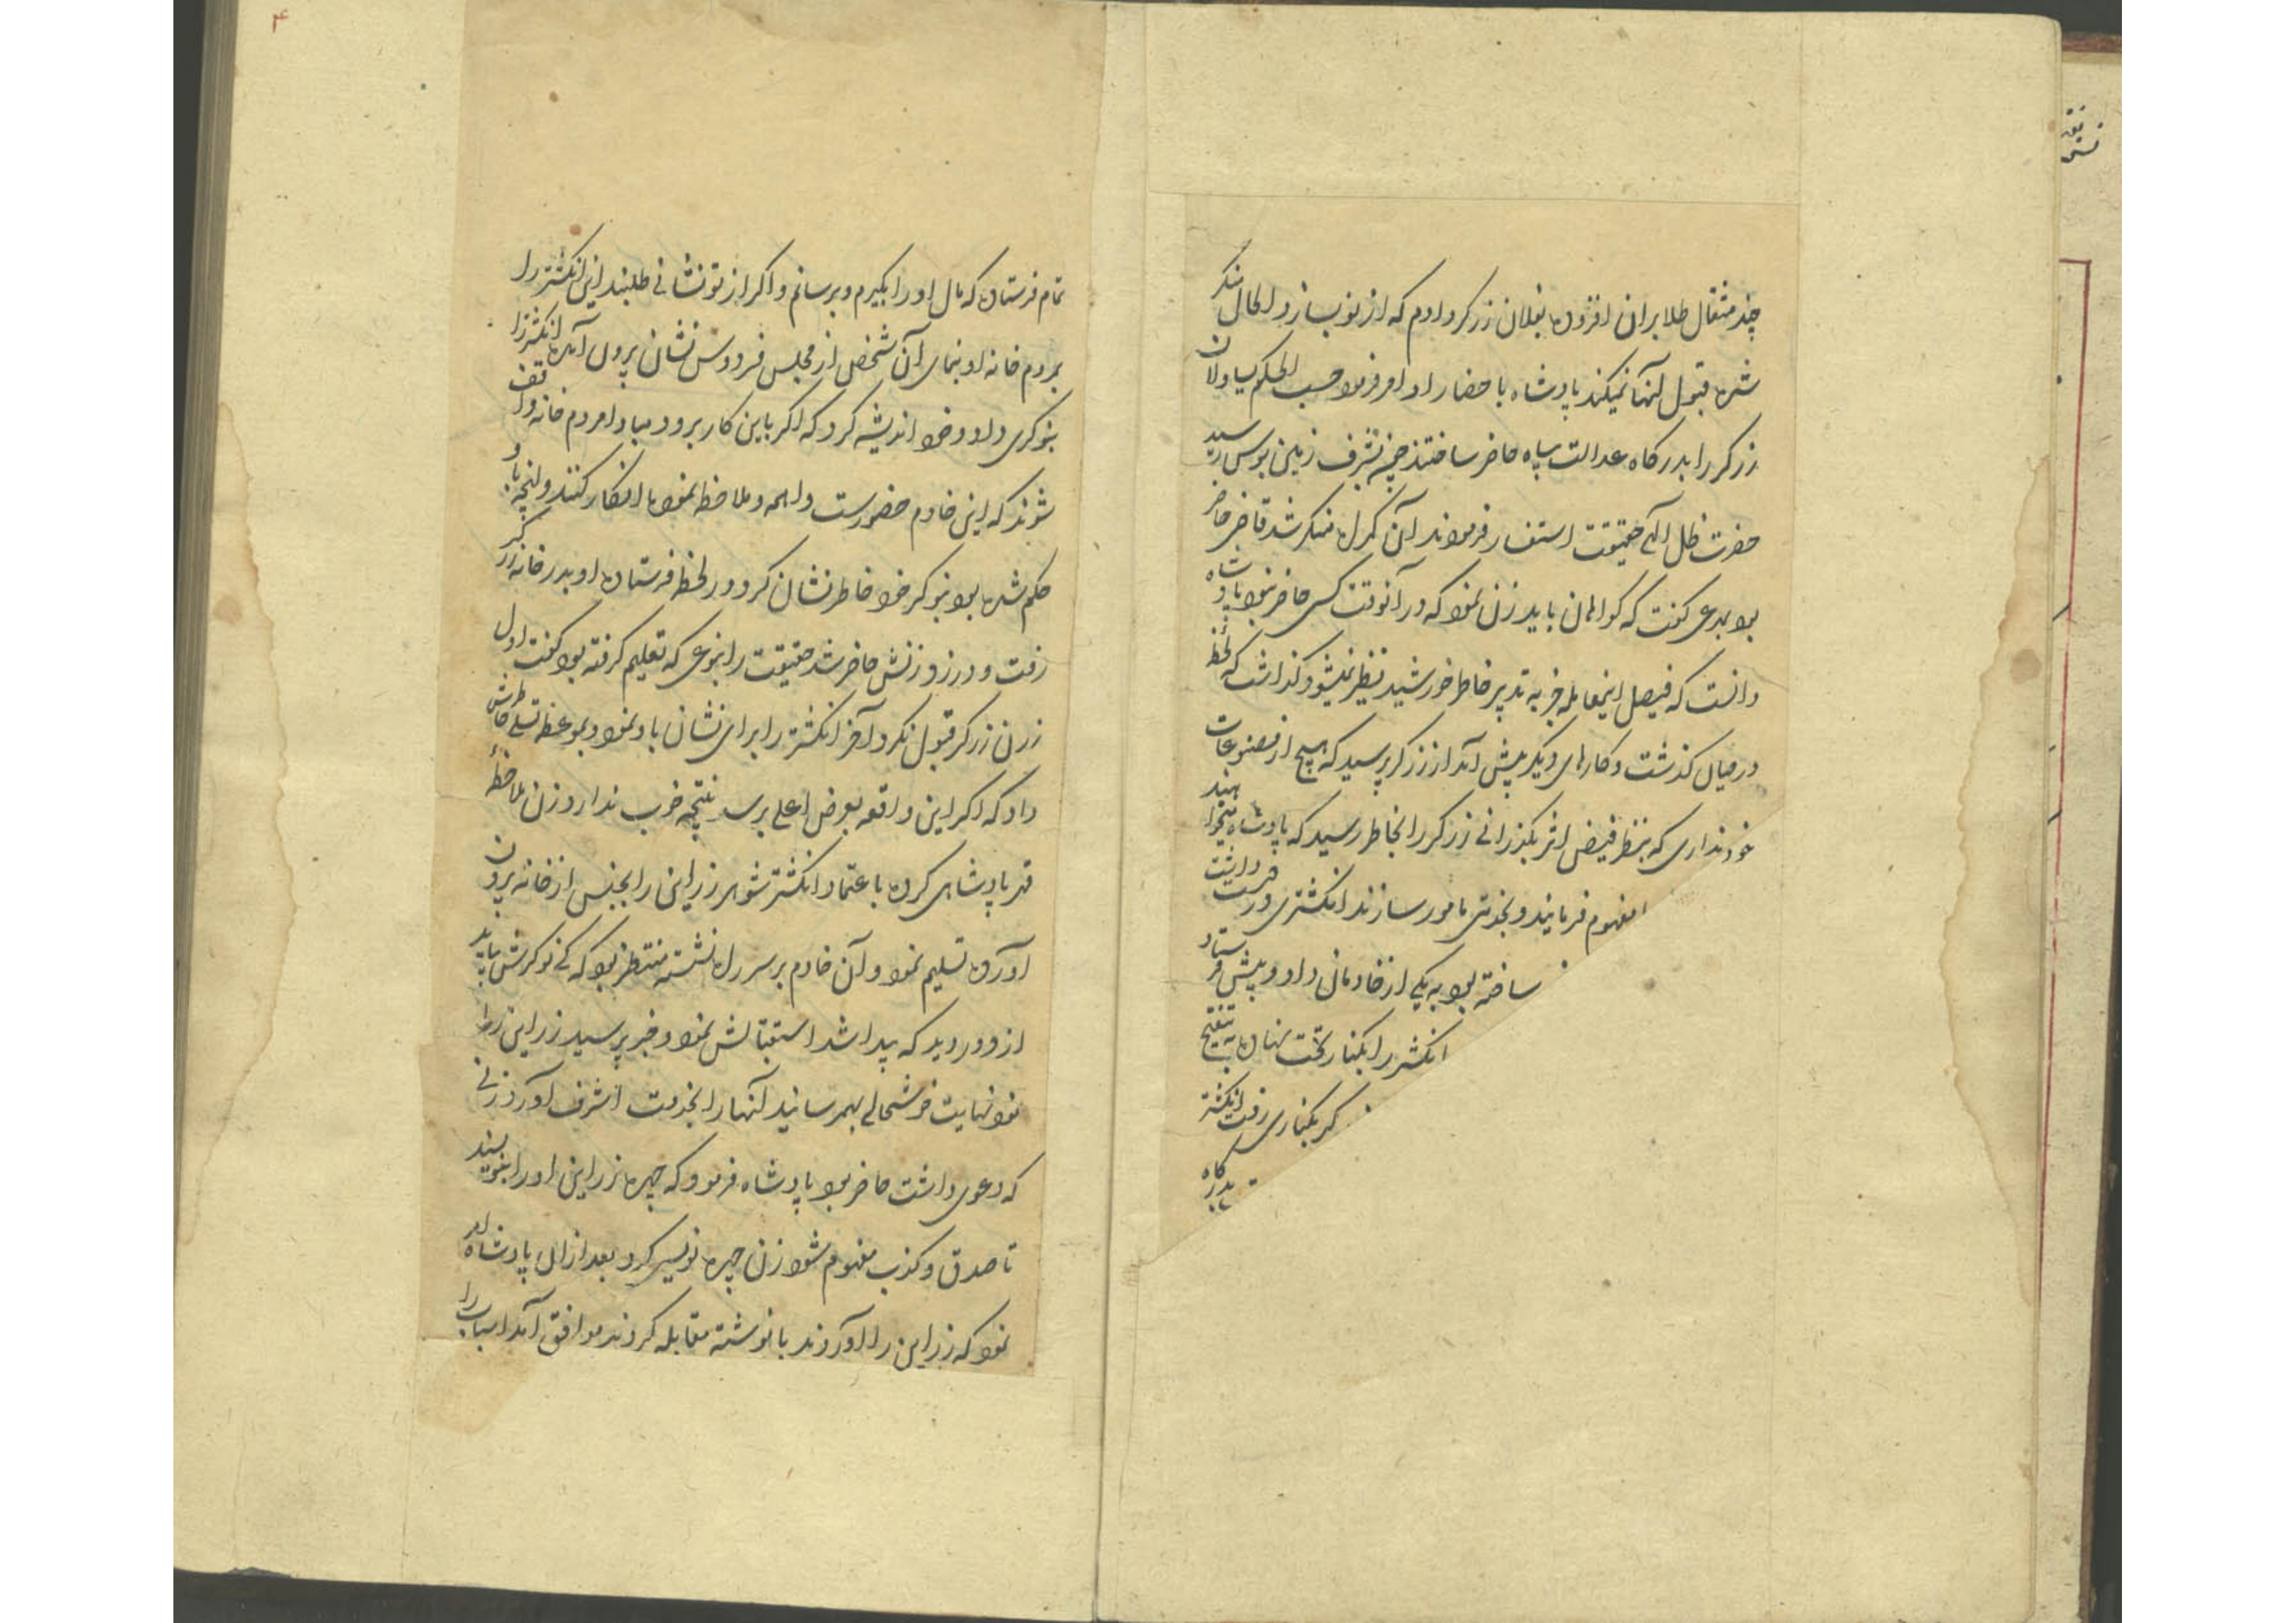 چند مثقال طلا بران افزوده بفلان زرکر دادم که از نو بسازد الحال منکر
شده قبول آنها نمیکند پادشاه باحضار او امر فرمود حسب الحکم یساولان
زرکر را بدرکاه عدالت پناه حاضر ساختند چون بشرف زمین بوس رسید
حضرت ظل الهی حقیقت استفسار فرمودند آن کمراه منکر شد قاضی حاضر
بود بمدعی کفت که کواهان باید زن نمود که در آنوقت کسی حاضر نبود پادشاه
دانست که فیصل اینمعامله جز به تدبیر خاطر خورشید نظیر نمیشود کذاشت که لحظهٔ
در میان کذشت و کارهای دیکر پیش آمد از زرکر پرسید که هیچ از مصنوعات
خود نداری که بنظر فیض اثر بکذرانی زرکر را بخاطر رسید که پادشاه میخواهند
مفهوم فرمایند و بخدمتی مامور سازند انکشتری در دست داشت
ساخته بود به یکی از خادمان داد و پیش فرستاد
انکشتر را بکنار تخت نهاده به تنقیح
کر بکناری رفت انکشتر
بدرکاه
تمام فرستاده که مال او را بکیرم و برسانم و اکر از تو نشانی طلبند این انکشتر را
بمردم خانه او بنمای آن شخص از مجلس فردوس نشان برون آمده انکشتر را
بنوکری داد و خود اندیشه کرد که اکر باین کار برود مبادا مردم خانه واقف
شوند که این خادم حضورست واهمه و ملاحظه نموده انکار کنند و آنچه باو
حکم شده بود بنوکر خود خاطر نشان کرد در لحظه فرستاده او بدر خانه زرکر
رفت و در زد زنش حاضر شد حقیقت را بنوعی که تعلیم کرفته بود کفت اول
زن زرکر قبول نکرد آخر انکشتر را برای نشان باو نمود و بموعظه تسلی خاطرش
داد که اکر این واقعه بعرض اعلی برسد نتیجه خوب ندارد زن ملاحظهٔ
قهر پادشاهی کرده باعتماد انکشتر شوهر زراین را بجنس از خانه برون
آورده تسلیم نمود و آن خادم بر سر راه نشسته منتظر بود که کی نوکرش بیاید
از دور دید که پیدا شد استقبالش نمود و خبر پرسید زراین را
نمود نهایت خوشحالی بهمرسانید آنها را بخدمت اشرف آورد زنی
که دعوی داشت حاضر بود پادشاه فرمود که چهره زراین او را بنویسند
تا صدق و کذب مفهوم شود زن چهره نویسی کرد بعد ازان پادشاه امر
نمود که زراین را آوردند با نوشته مقابله کردند موافق آمد اسباب را